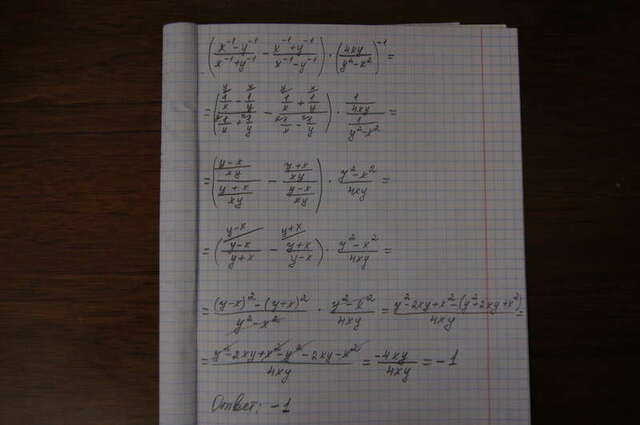 ((x⁻¹-y⁻¹)/(x⁻¹+y⁻¹) - (x⁻¹+y⁻¹)/(x⁻¹-y⁻¹)) · (4xy/(y²-x²))⁻¹ =
= ((1/x - 1/y)/(1/x + 1/y) - (1/x + 1/y)/(1/x - 1/y)) · (1/4xy)/(1/(y²-x²)) =
= (((y-x)/xy)/((y+x)/xy) - ((y+x)/xy)/((y-x)/xy)) · (y²-x²)/4xy =
= ((y-x)/(y+x) - (y+x)/(y-x)) · (y²-x²)/4xy =
= ((y-x)²-(y+x)²)/(y²-x²) · (y²-x²)/4xy = (y²-2xy+x²-(y²+2xy+x²))/4xy =
= (y²-2xy+x²-y²-2xy-x²)/4xy = -4xy/4xy = -1
Ответ: -1